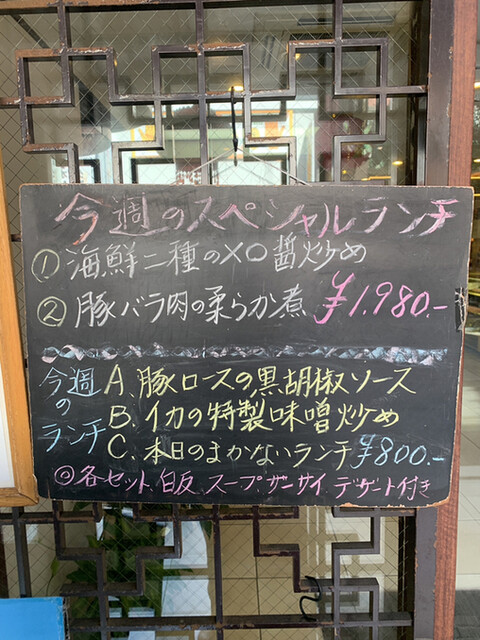 今週のスペシャルランチ
① 海鮮二種のXO醤炒め
② 豚バラ肉の柔らか煮 ¥1,980.-
今週のランチ
A、豚ロースの黒胡椒ソース
B、イカの特製味噌炒め
C、本日のまかないランチ ¥800.-
◎各セット、白飯 スープ、ザーサイ デザート付き